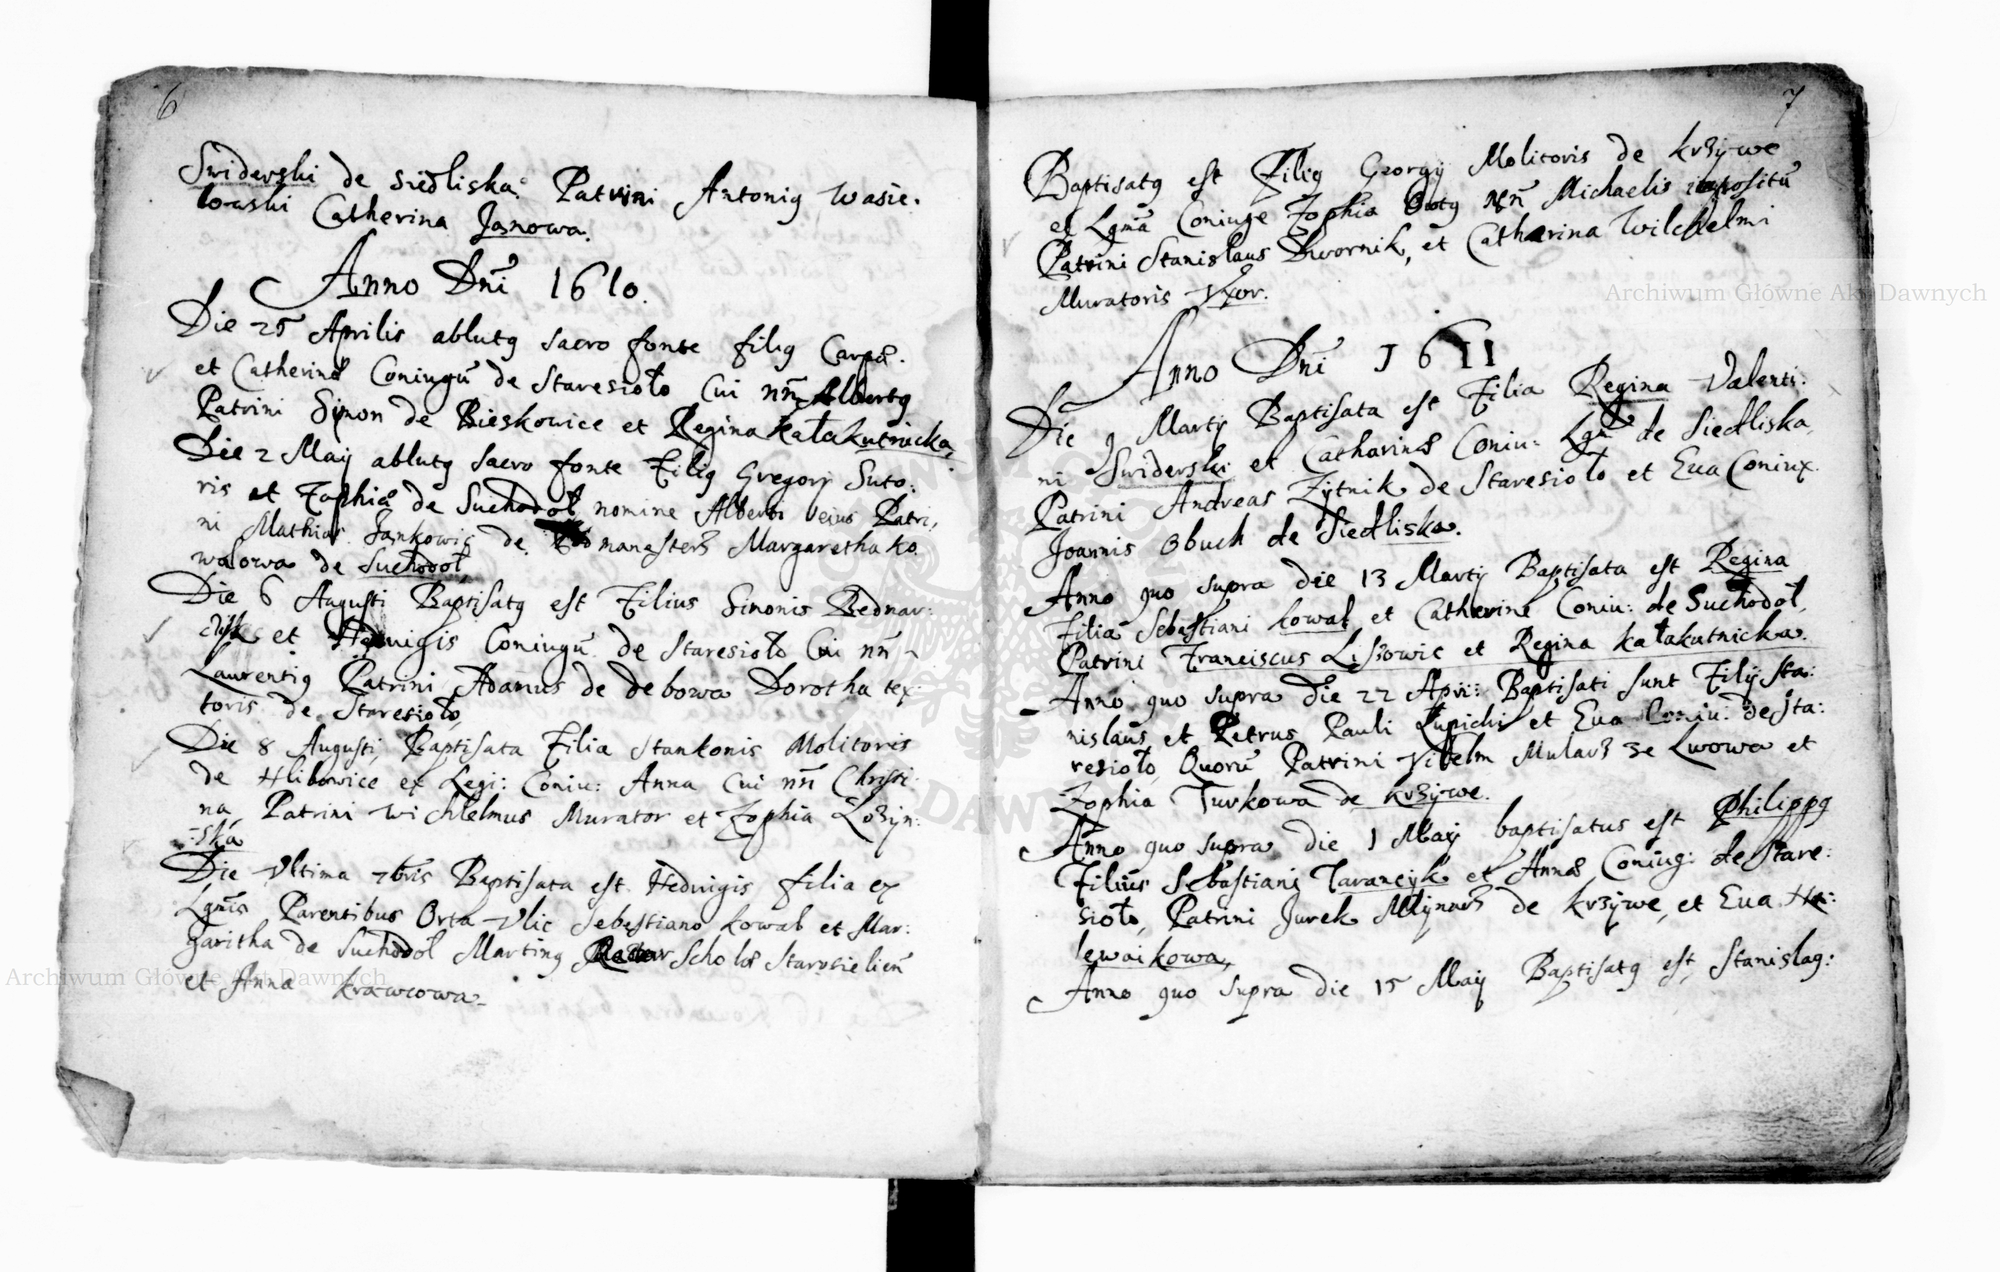 6
Swiderski de Siedliska. Patrini Antonig Wasie.
lowski Catherina Janowa.
Anno Dni 1610.
Die 25 Aprilis ablutg sacro fonte filig Carpæ.
et Catherinæ Coniugū de Staresioło Cui nn Albertg
Patrini Simon de Bieskowice et Regina Kałakutnicka,
Die 2 Maij ablutg sacro fonte Filig Gregorij Suto:
ris et Zophiæ de Suchodoł nomine Alberti eius Patri,
ni Mathias Jankowic de Margaretha Ko
walowa de Suchodoł,
Die 6 Augusti Baptisatg est Filius Simonis Bednar:
et Hedwigis Coniugū de Staresioło Cui nn
Laurentig Patrini Adamus de debowa Dorotha tex:
toris de Staresioło,
Die 8 Augusti, Baptisata Filia Stankonis Molitoris
de Hlibowice ex Legi: Coniu: Anna Cui nn Christi
na, Patrini Wichlelmus Murator et Zophia Lozyn:
:ska
Die Vltima 7bris Baptisata est Hedwigis filia ex
Lgmis Parentibus Orta Vlic Sebestiano Kowal et Mar:
garitha de Suchodoł Marting Scholæ Starosielien
et Anna Krawcowa
7
Baptisatg est Filig Georgij Molitoris de Krzywe
et Lgma Coniuge Zophia Nn Michaelis impositū
Patrini Stanislaus Dwornik, et Catharina Wilchelmi
Muratoris Vxor.
Anno Dni 1611
Die 9 Martij Baptisata est Filia Regina Valenti:
ni Swiderski et Catharinæ Coniu: Lgm de Siedliska,
Patrini Andreas Zytnik de Staresioło et Eua Coniux
Joannis Obuch de Siedliska.
Anno quo supra die 13 Martij Baptisata est Regina
filia Sebestiani Kowal et Catherine Coniu: de Suchodoł,
Patrini Franciscus Liszowic et Regina Kałakutnicka.
Anno quo supra die 22 Apri: Baptisati sunt Filij Sta:
nislaus et Petrus Pauli Lupicki et Eua Coniu: de Sta:
resioło, Quorū Patrini Vilelm Mularz ze Lwowa et
Zophia Turkowa de Krzywe.
Anno quo supra die 1 Maij baptisatus est Philippg
Filius Sebastiani Tarancyk et Annæ Coniug: de Stare:
sioło, Patrini Jurek Mlynarz de Krzywe, et Eua Ha:
lewaikowa,
Anno quo supra die 15 Maij Baptisatg est Stanislag:
Archiwum Główne Akt Dawnych
Archiwum Główne Akt Dawnych